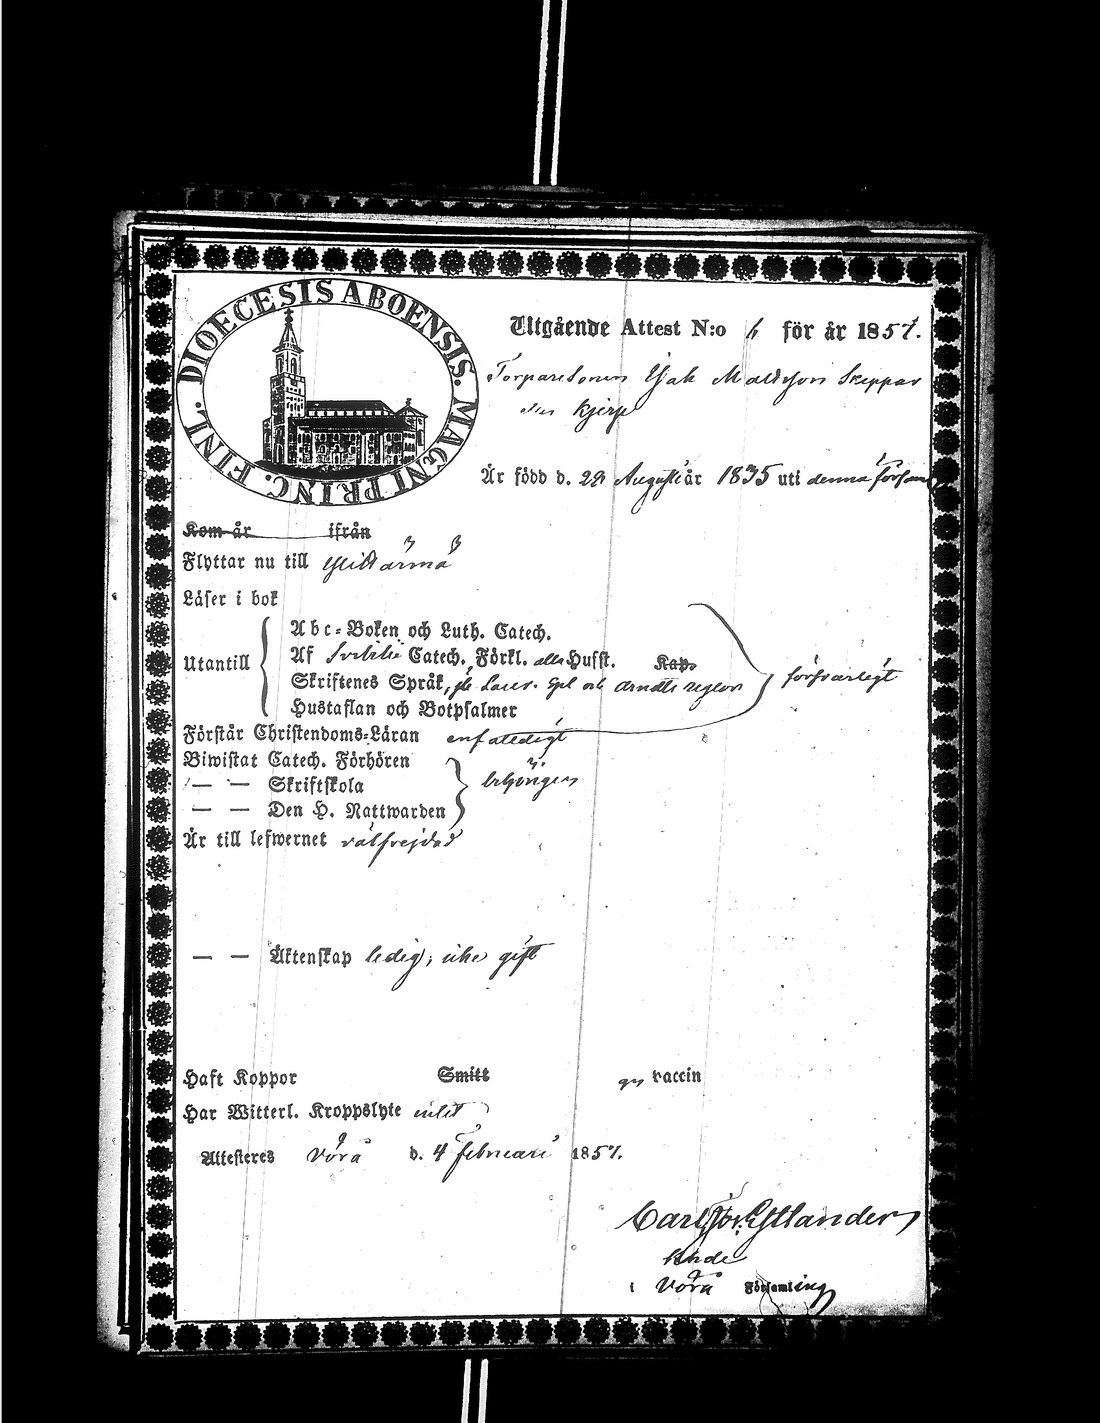 DIOECESIS ABOENSIS. MAGNI PRINC. FINL.
Utgående Attest N:o 6 för år 1857.
Torparesonen Isak Mattsson Skeppar
Är född d. 29 Augusti år 1835 uti denna försam
Kom år ifrån
Flyttar nu till Ylihärmä
Läser i bok
Abc-Boken och Luth. Catech.
Utantill Af Svebilii Catech. Förkl. alla Husst. Kap. försvarligt
Skriftenes Språk, och
Hustaflan och Botpsalmer
Förstår Christendoms-Läran enfaldigt
Biwistat Catech. Förhören
— — Skriftskola behörigen
— — Den H. Nattwarden
Är till lefwernet välfrejdad
— — Äktenskap ledig, icke gift
Haft Koppor Smitt vaccin
Har Witterl. Kroppslyte intet
Attesteres Vörå d. 4 Februari 1857.
Carl Estlander
i Vörå Församling